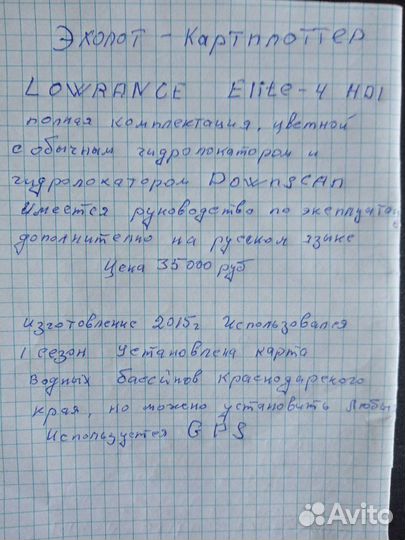 Эхолот - Картплоттер
LOWRANCE Elite-4 HDI
полная комплектация, цветной
с обычным гидролокатором и
гидролокатором Downscan
Имеется руководство по эксплуатац
дополнительно на русском языке
Цена 35000 руб
Изготовление 2015г Использовался
1 сезон Установлена карта
Водных бассейнов Краснодарского
края, но можно установить любы
Используется GPS
Avito